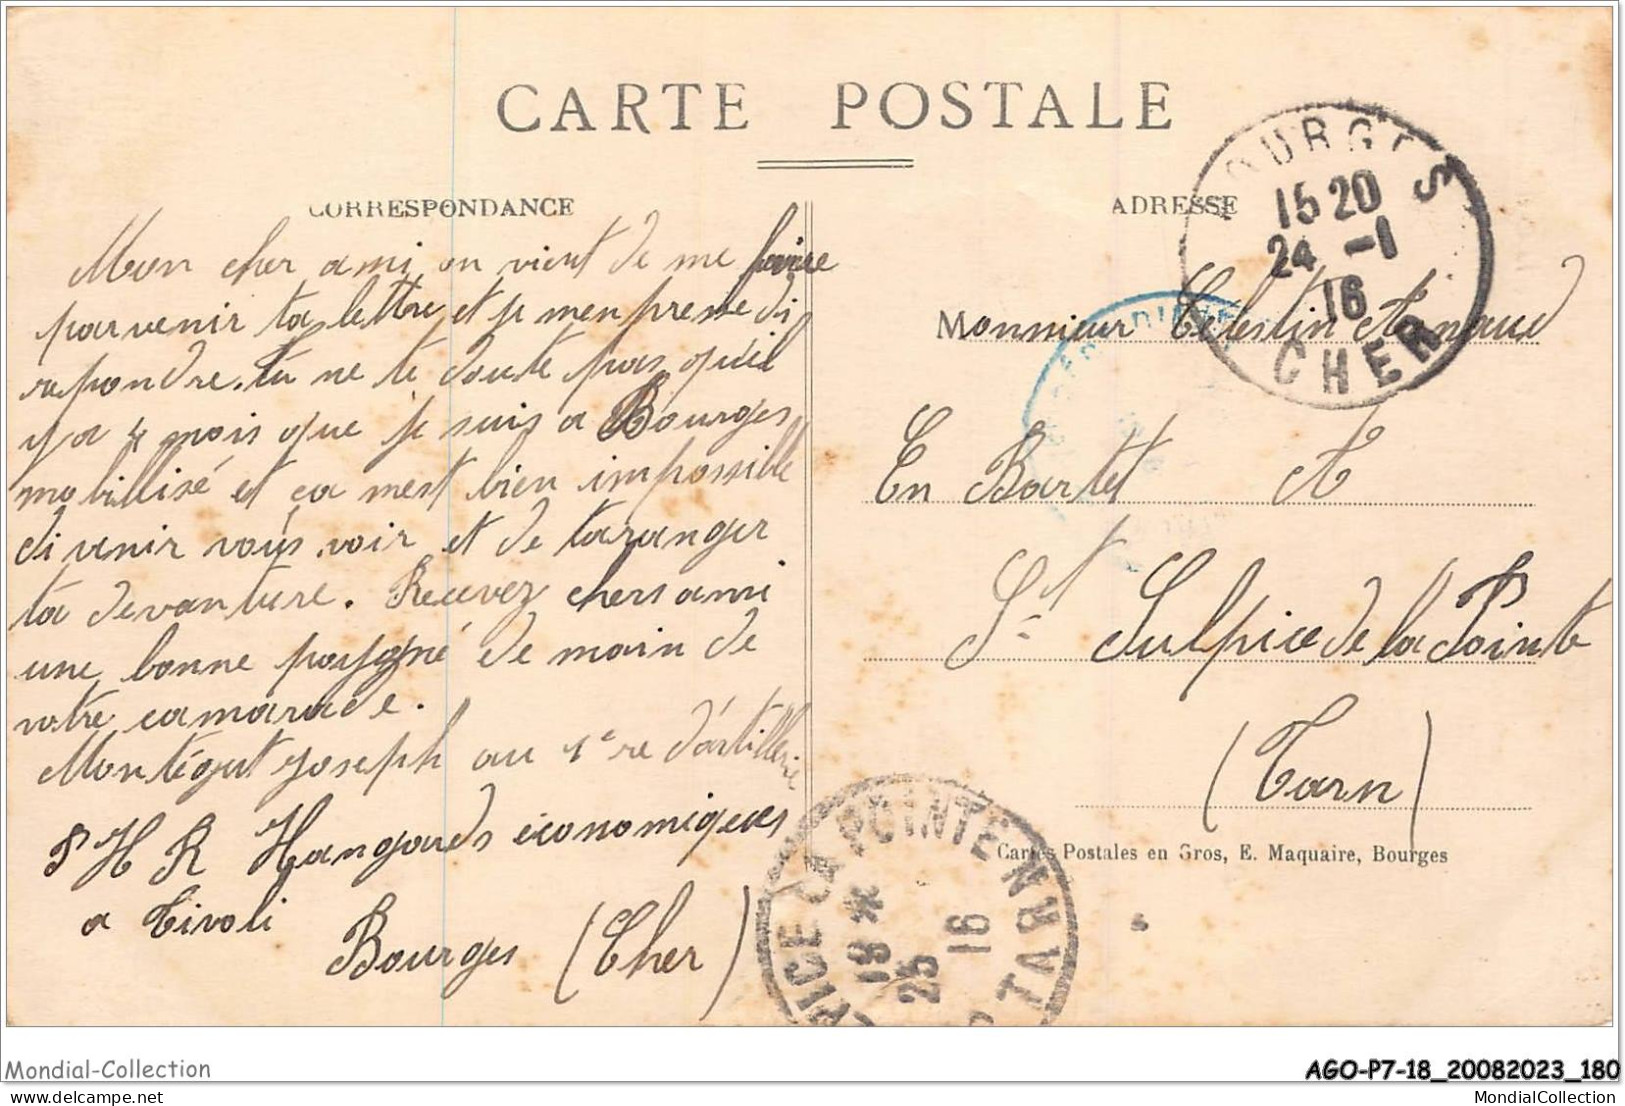 CARTE POSTALE
CORRESPONDANCE
Mon cher ami on vient de me faire
parvenir ta lettre et je men presse di
repondre. tu ne te doute pas qu'il
y a 4 mois que je suis a Bourges
mobillisé et ca mest bien impossible
di venir voús voir et de taranger
ta devanture. Recevez chers ami
une bonne poygné de main de
votre camarade.
Montégut Joseph au 1e re d'artillerie
P H R Hangards économiques
a Tivoli
Bourges (Cher)
ADRESSE
Monnieur Celestin Arnaud
En Bartet
St Sulpice de la Pointe
(Tarn)
Cartes Postales en Gros, E. Maquaire, Bourges
BOURGES
15 20
24 -1
16
CHER
PICE LA POINTE
18 *
25
16
TARN
Mondial-Collection
AGO-P7-18_20082023_180
MondialCollection